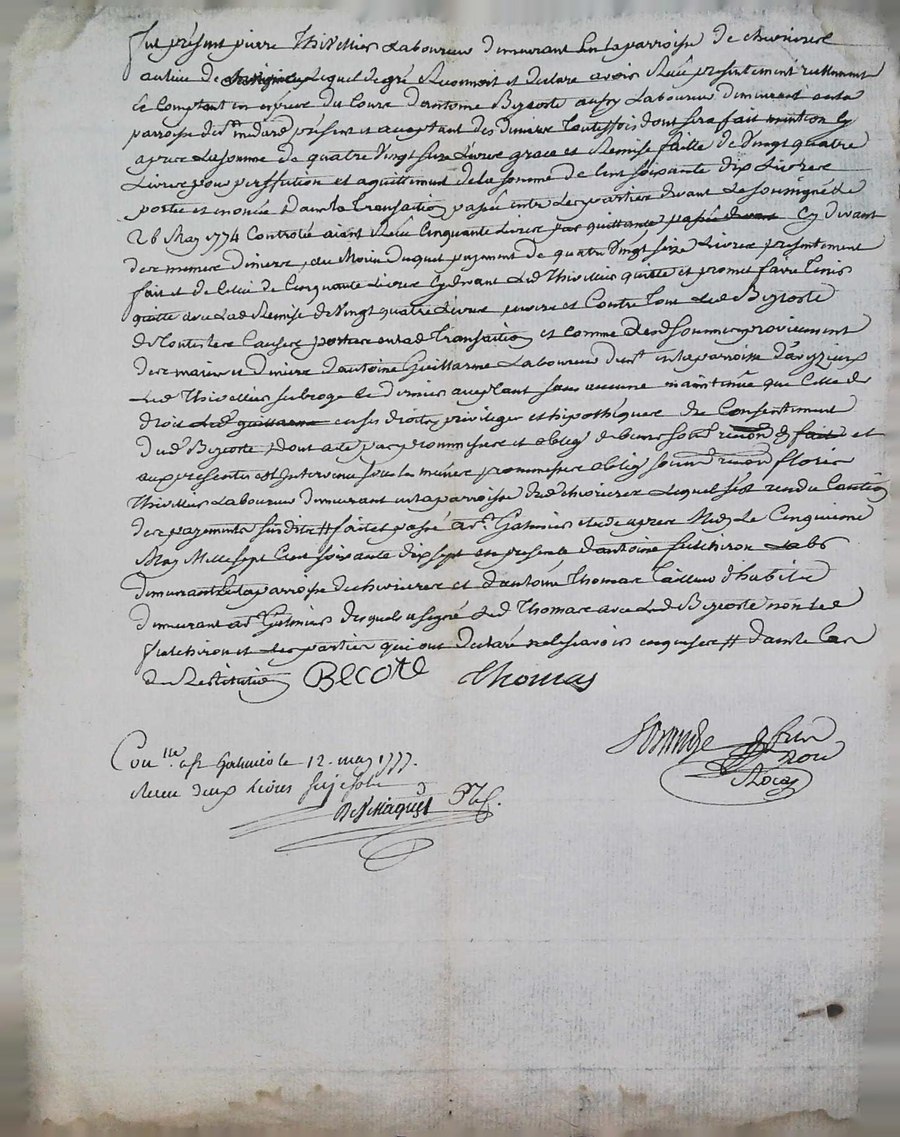 fut présent pierre Thivellier Laboureur demeurant en la parroisse de chevrieres
au lieu de lequel de gré Reconnoit et declare avoir Receu presentement reellement
et comptant en espece du Cours d'antoine Becoste aussy Laboureur demeurant en la
parroisse de st medard present et acceptant des deniers toutesfois dont sera fait mention cy
apres La somme de quatre vingt seize Livres grace et Remise faitte de vingt quatre
Livres pour perffection et aquittement de la somme de Cent soixante dix Livres
portée et enoncée dans la Transaction passée entre Les parties devant Le soussigné Le
26 May 1774 Controlée aiant Receu Cinquante Livres par quittance passée devant Cy devant
des memes deniers, au Moien duquel payement de quatre vingt seize Livres presentement
fait et de Celui de Cinquante Livres cy devant Led Thivellier quitte et promet faire tenir
quitte avec Lad Remise de vingt quatre Livres envers et Contre tous Led Becoste
de toutes les Causes portées en lad Transaction et comme Lesd sommes proviennent
des mains et deniers d'antoine Guillarme Laboureur demt en la parroisse d'aveizieux
Led Thivellier subroge le dernier acceptant sans aucune maintenue que Celle de
droit Led guillarme en ses droits, privileges et hipotheques du Consentement
dud Becoste, dont acte par promesses et oblig de leurs soub renon & fait et
aux presentes est intervenu sous les memes promesses oblig soum renon floris
Thivellier Laboureur demeurant en la parroisse de chevrieres Lequel s'est rendu Caution
des payements susdits # fait et passé a st Galmier etude apres Midy Le Cinquieme
May Mille sept Cent soixante dix sept en presence d'antoine futchiron Labr
demeurant en la parroisse de chevrieres et d'antoine Thomas Tailleur d'habits
demeurant a st Galmier desquels a signé Led Thomas avec Led Becoste non Led
futchiron et les parties qui ont declaré ne le scavoir enquises # dans le Cas
de Restitution BECOTE Thomas
Con lle a st Galmier le 12 may 1777.
Receu deux Livres